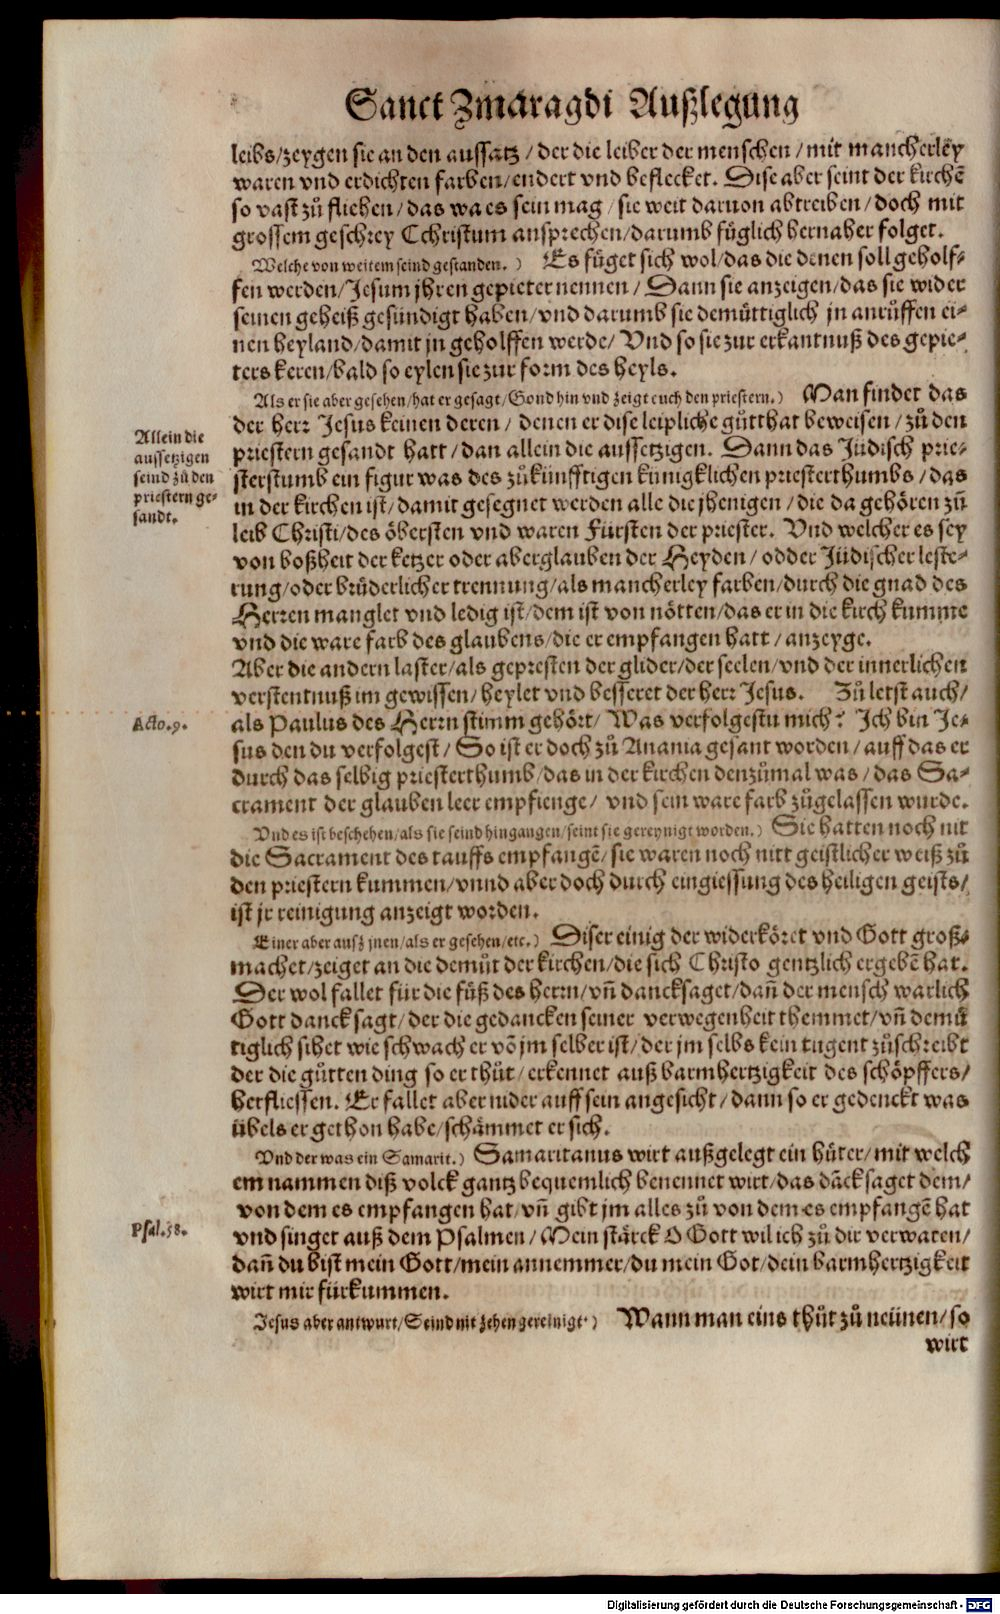 Sanct Zmaragdi Außlegung
leibs/zeygen sie an den aussatz / der die leiber der menschen / mit mancherley
waren vnd erdichten farben/endert vnd beflecket. Dise aber seint der kirchē
so vast zů fliehen/das wa es sein mag / sie weit daruon abtreiben/doch mit
grossem geschrey Cchristum ansprechen/darumb füglich hernaher folget.
Welche von weitem seind gestanden. ) Es füget sich wol/das die denen soll geholf-
fen werden/Jesum jhren gepieter nennen / Dann sie anzeigen/das sie wider
seinen geheiß gesündigt haben/vnd darumb sie demüttiglich jn anrüffen ei-
nen heyland/damit jn geholffen werde/ Vnd so sie zur erkantnuß des gepie-
ters keren/bald so eylen sie zur form des heyls.
Als er sie aber gesehen/hat er gesagt/Gond hin vnd zeigt euch den priestern.) Man findet das
der herr Jesus keinen deren / denen er dise leipliche gůtthat beweisen / zů den
Allein die
aussetzigen
seind zů den
priestern ge-
sandt.
priestern gesandt hatt/dan allein die aussetzigen. Dann das Jüdisch prie-
sterstumb ein figur was des zůkünfftigen künigklichen priesterthumbs/das
in der kirchen ist/damit gesegnet werden alle die jhenigen / die da gehören zů
leib Christi/des öbersten vnd waren Fürsten der priester. Vnd welcher es sey
von boßheit der ketzer oder aberglauben der Heyden / odder Jüdischer leste-
rung/oder brüderlicher trennung/als mancherley farben/durch die gnad des
Herren manglet vnd ledig ist/dem ist von nötten/das er in die kirch kumme
vnd die ware farb des glaubens/die er empfangen hatt/anzeyge.
Aber die andern laster/als gepresten der glider/der seelen/vnd der innerlichen
verstentnuß im gewissen/heylet vnd besseret der herr Jesus. Zů letst auch/
Acto.9.
als Paulus des Herrn stimm gehört/ Was verfolgestu mich? Ich bin Je-
sus den du verfolgest/ So ist er doch zů Anania gesant worden/auff das er
durch das selbig priesterthumb/das in der kirchen denzůmal was/das Sa-
crament der glauben leer empfienge/ vnd sein ware farb zůgelassen wurde.
Vnd es ist beschehen/als sie seind hingangen/seint sie gereynigt worden.) Sie hatten noch nit
die Sacrament des tauffs empfangē/sie waren noch nitt geistlicher weiß zů
den priestern kummen/vnnd aber doch durch eingiessung des heiligen geists/
ist jr reinigung anzeigt worden.
Einer aber ausz jnen/als er gesehen/etc.) Diser einig der widerköret vnd Gott groß-
machet/zeiget an die demůt der kirchen/die sich Christo gentzlich ergebē hat.
Der wol fallet für die füß des herrn/vñ dancksaget/dañ der mensch warlich
Gott danck sagt/der die gedancken seiner verwegenheit themmet/vñ demü
tiglich sihet wie schwach er võ jm selber ist/der jm selbs kein tugent zůschreibt
der die gůtten ding so er thůt/erkennet auß barmhertzigkeit des schöpffers/
herfliessen. Er fallet aber nider auff sein angesicht/dann so er gedenckt was
übels er gethon habe/schämmet er sich.
Vnd der was ein Samarit.) Samaritanus wirt außgelegt ein hüter/mit welch
em nammen diß volck gantz bequemlich benennet wirt/das dāck saget dem/
von dem es empfangen hat/vñ gibt jm alles zů von dem es empfangē hat
Psal.58.
vnd singet auß dem Psalmen/Mein stärck O Gott wil ich zů dir verwaren/
dañ du bist mein Gott/mein annemmer/du mein Got/dein barmhertzigkeit
wirt mir fürkummen.
Jesus aber antwurt/Seind nit zehen gereinigt.) Wann man eins thůt zů neünen/so
wirt
Digitalisierung gefördert durch die Deutsche Forschungsgemeinschaft - DFG